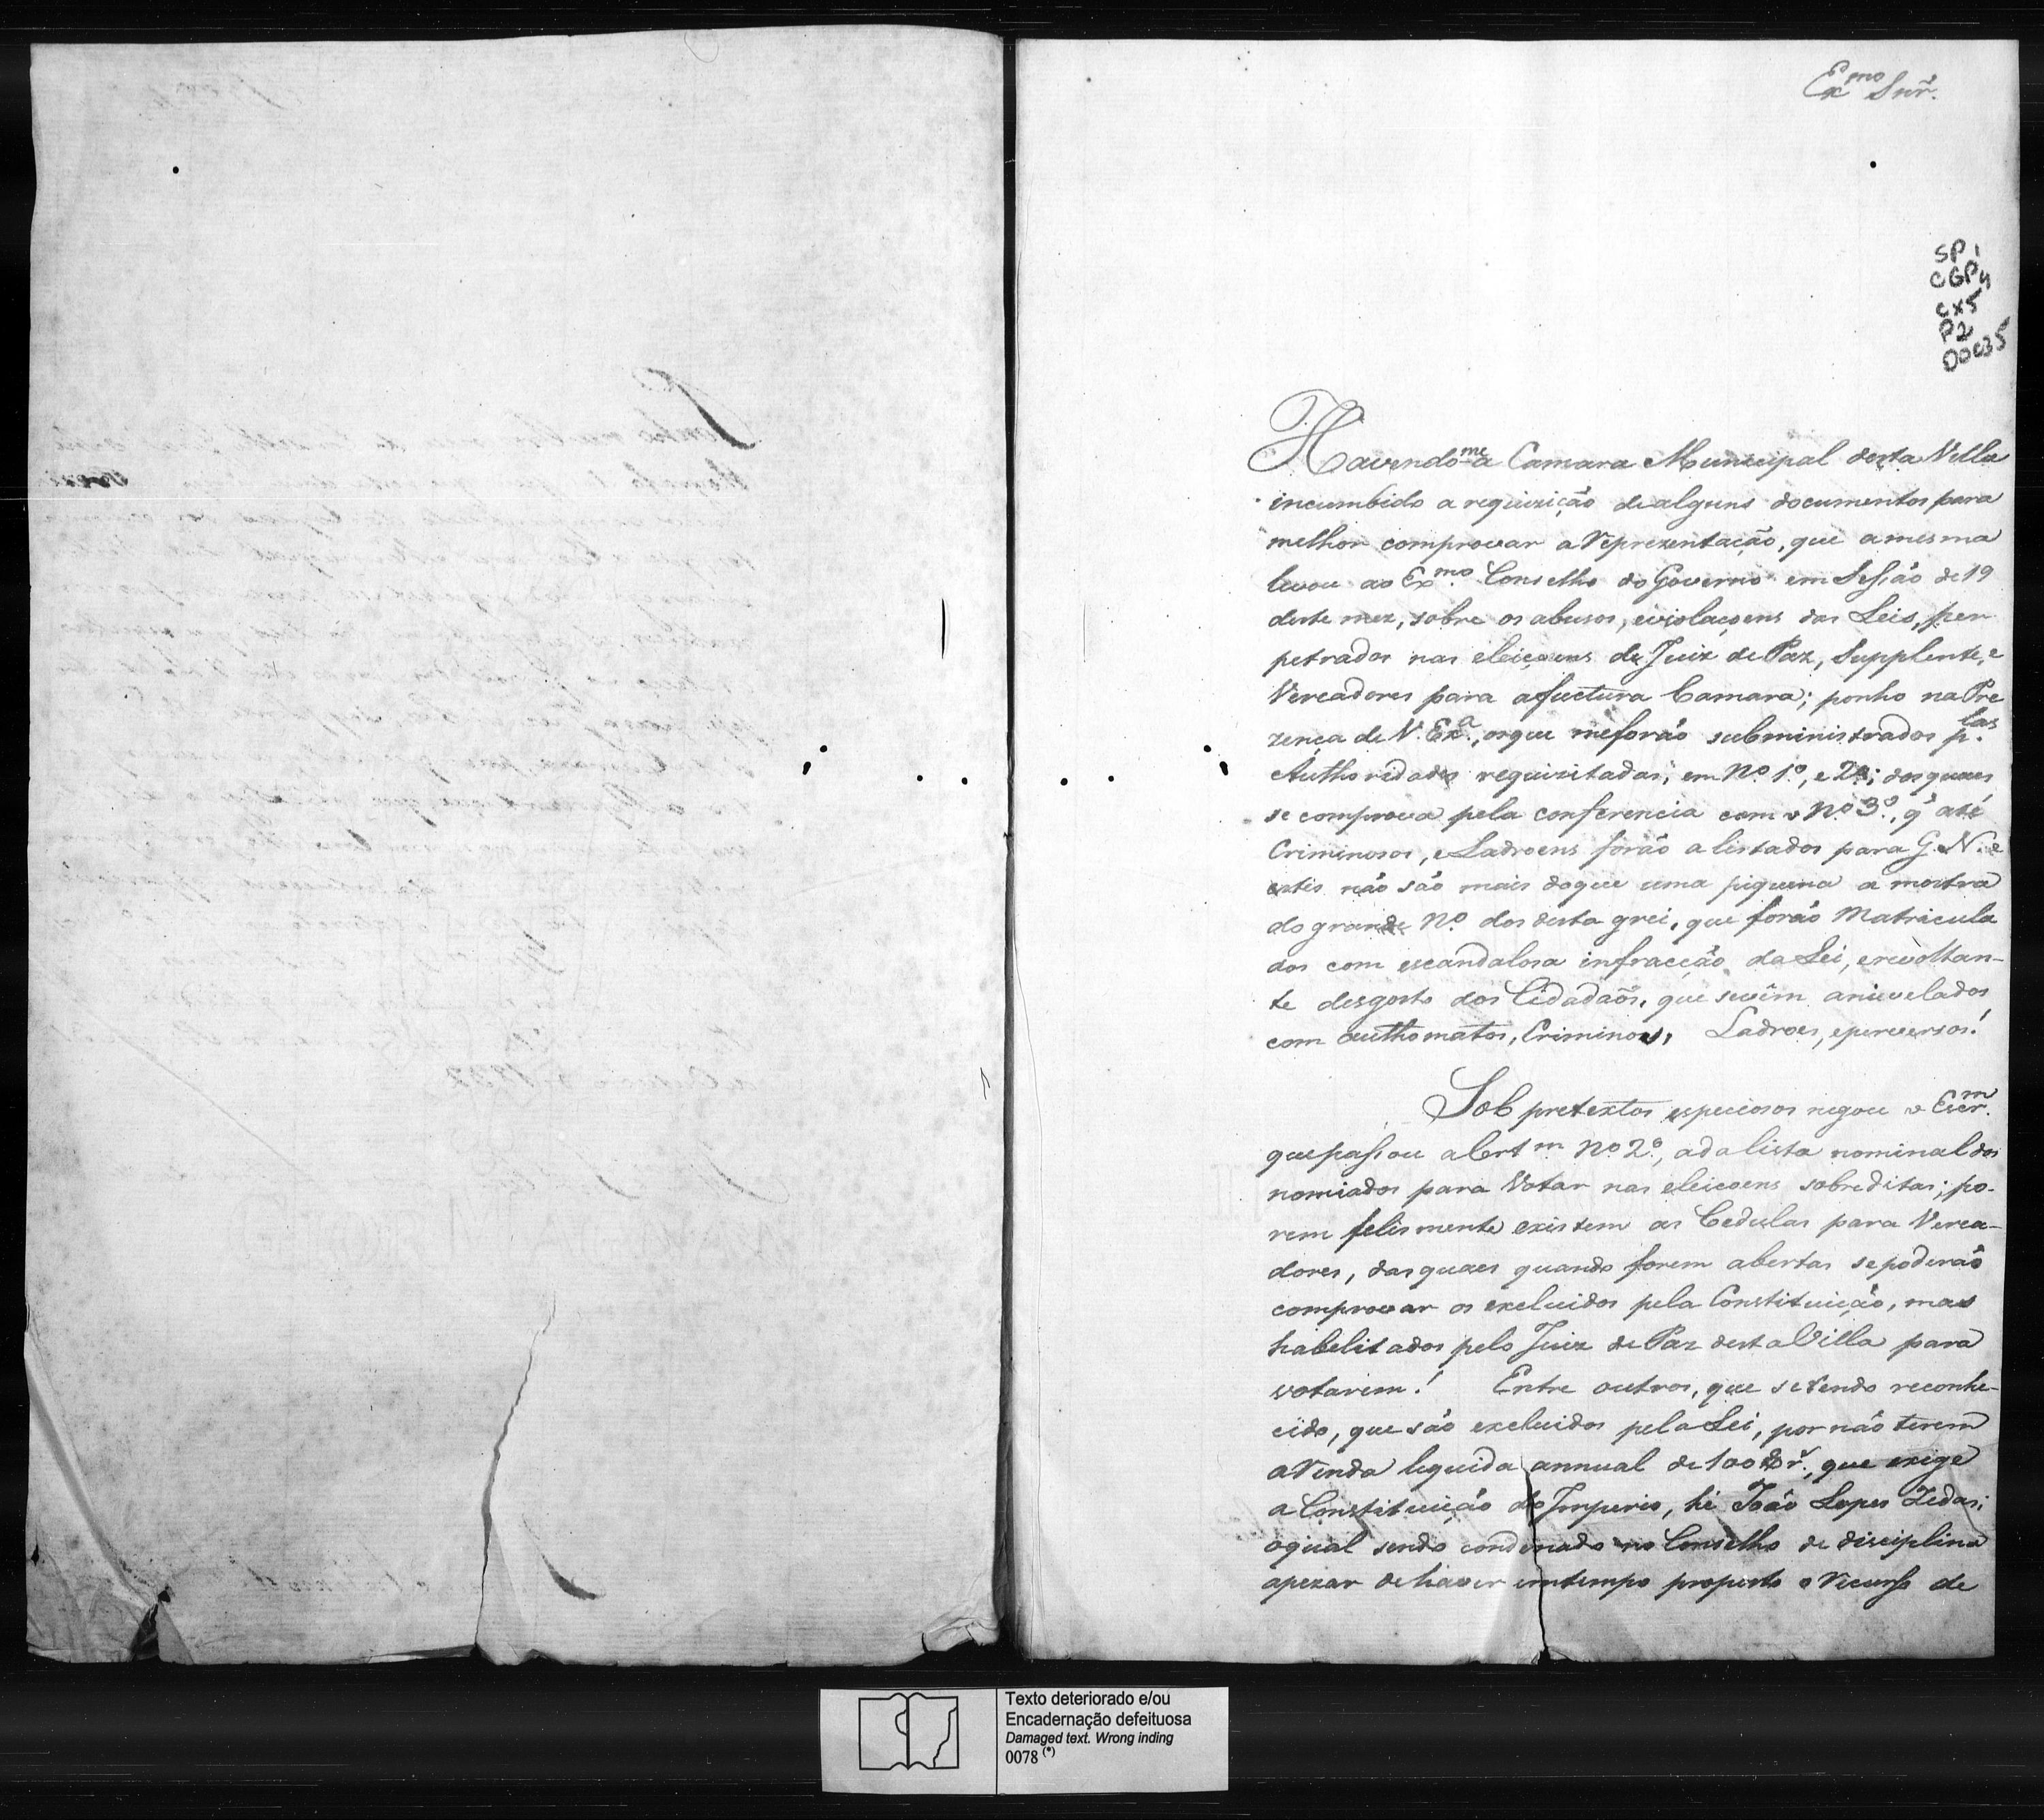 Ex.mo Snr.
SP1
CGP4
CX5
P2
00035
Havendo-me a Camara Municipal desta Villa
incumbido a requizição de alguns documentos para
melhor comprovar a Reprezentação, que a mesma
levou ao Ex.mo Conselho do Governo em Sessão de 19
deste mez, sobre os abusos, e violaçoens das Leis, per
petrados nas eleiçoens de Juiz de Paz, Supplente, e
Vereadores para a fuctura Camara; ponho na Pre
zença de V. Ex.a, os que me forão subministrados p.las
Authoridades requizitadas; em Nº 1º, e 2º; dos quaes
se comprova pela conferencia com o Nº 3º, q' até
Criminosos, e Ladroens forão alistados para G. N. e
estes não são mais do que uma piquena amostra
do grande Nº dos desta grei, que forão Matricula
dos com escandalosa infracção da Lei, e revoltan-
te desgosto dos Cidadãos, que se vêm anivelados
com authomatos, Criminosos, Ladroes, e perversos!
Sob pretextos especiosos negou o Escr.m
que passou a Cert.m Nº 2º, a da lista nominal dos
nomiados para Votar nas eleicoens sobreditas; po-
rem felismente existem as Cedulas para Verea-
dores, das quaes quando forem abertas se poderão
comprovar os excluidos pela Constituição, mas
habelitados pelo Juiz de Paz desta Villa para
votarem! Entre outros, que sendo reconhe-
cido, que são excluidos pela Lei, por não terem
a Renda liquida annual de 100$r.s, que exige
a Constituição do Imperio, he João Lopes
o qual sendo condenado no Conselho de disciplina
apezar de haver em tempo proposto o Recurso de
Texto deteriorado e/ou
Encadernação defeituosa
Damaged text. Wrong inding
0078 (*)